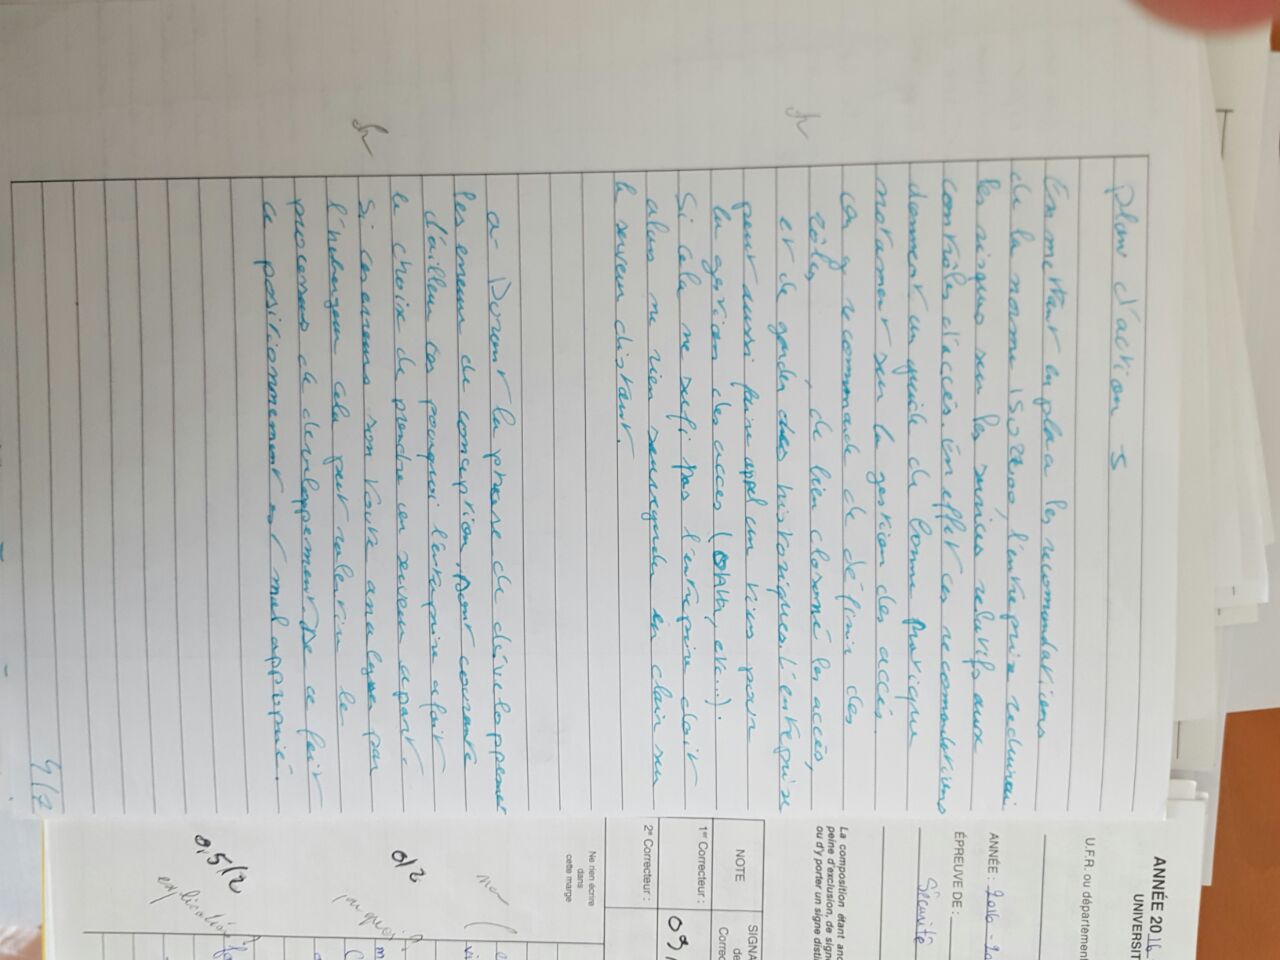 plan d'action 5
En mettant en place les recomendations
de la norme ISO 27000, l'entreprise reduirai
les risques sur les services relatifs aux
contrôles d'accès. En effet ces recomendations
donnent un guide de bonne pratique
notament sur la gestion des accès.
on y recommande de définir des
rôles , de bien closoné les accès,
et de garder des historiques. L'entreprise
peut aussi faire appel un tiers pour
la gestion des acces (OAuth, etc...).
Si cela ne sufi pas l'entreprire doit
alors ne rien sauvegarder en clair sur
le serveur distant.
a- Durant la phase de développement
les erreur de conception, sont courante
d'ailleur ces pourquoi l'entreprise a fait
le choix de prendre un serveur apart.
Si ces erreurs son toute analyser par
l'hebergeur cela peut ralentire le
processus de developpement. De ce fait
ce positionnement est mal approprié.
4/7
ANNÉE 2016
UNIVERSIT
U.F.R. ou département
ANNÉE : 2016 - 20
ÉPREUVE DE :
Sécurité
La composition étant ano
peine d'exclusion, de signe
ou d'y porter un signe disti
NOTE
SIGNA
de
Correc
1er Correcteur :
09,
2e Correcteur :
Ne rien écrire
dans
cette marge
non
0/2
pourquoi ?
0,5/2
explication